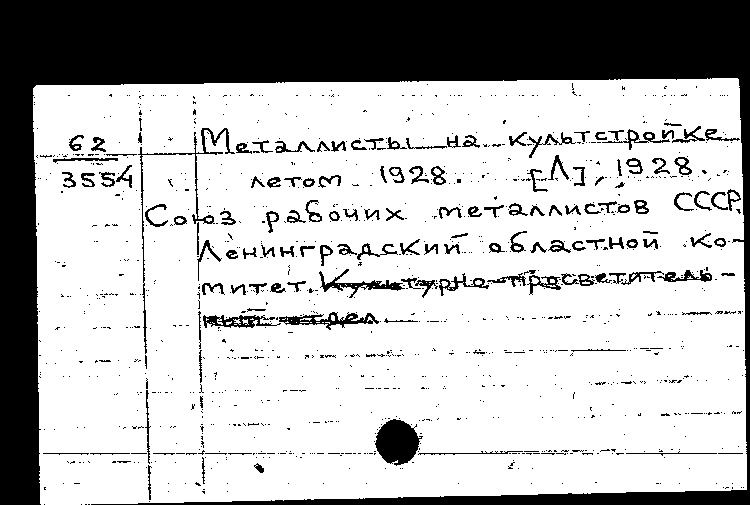 62
3554
Металлисты на культстройке
летом 1928. [Л], 1928.
Союз рабочих металлистов СССР.
Ленинградский областной ко-
митет. Культурно-просветитель-
ный отдел.